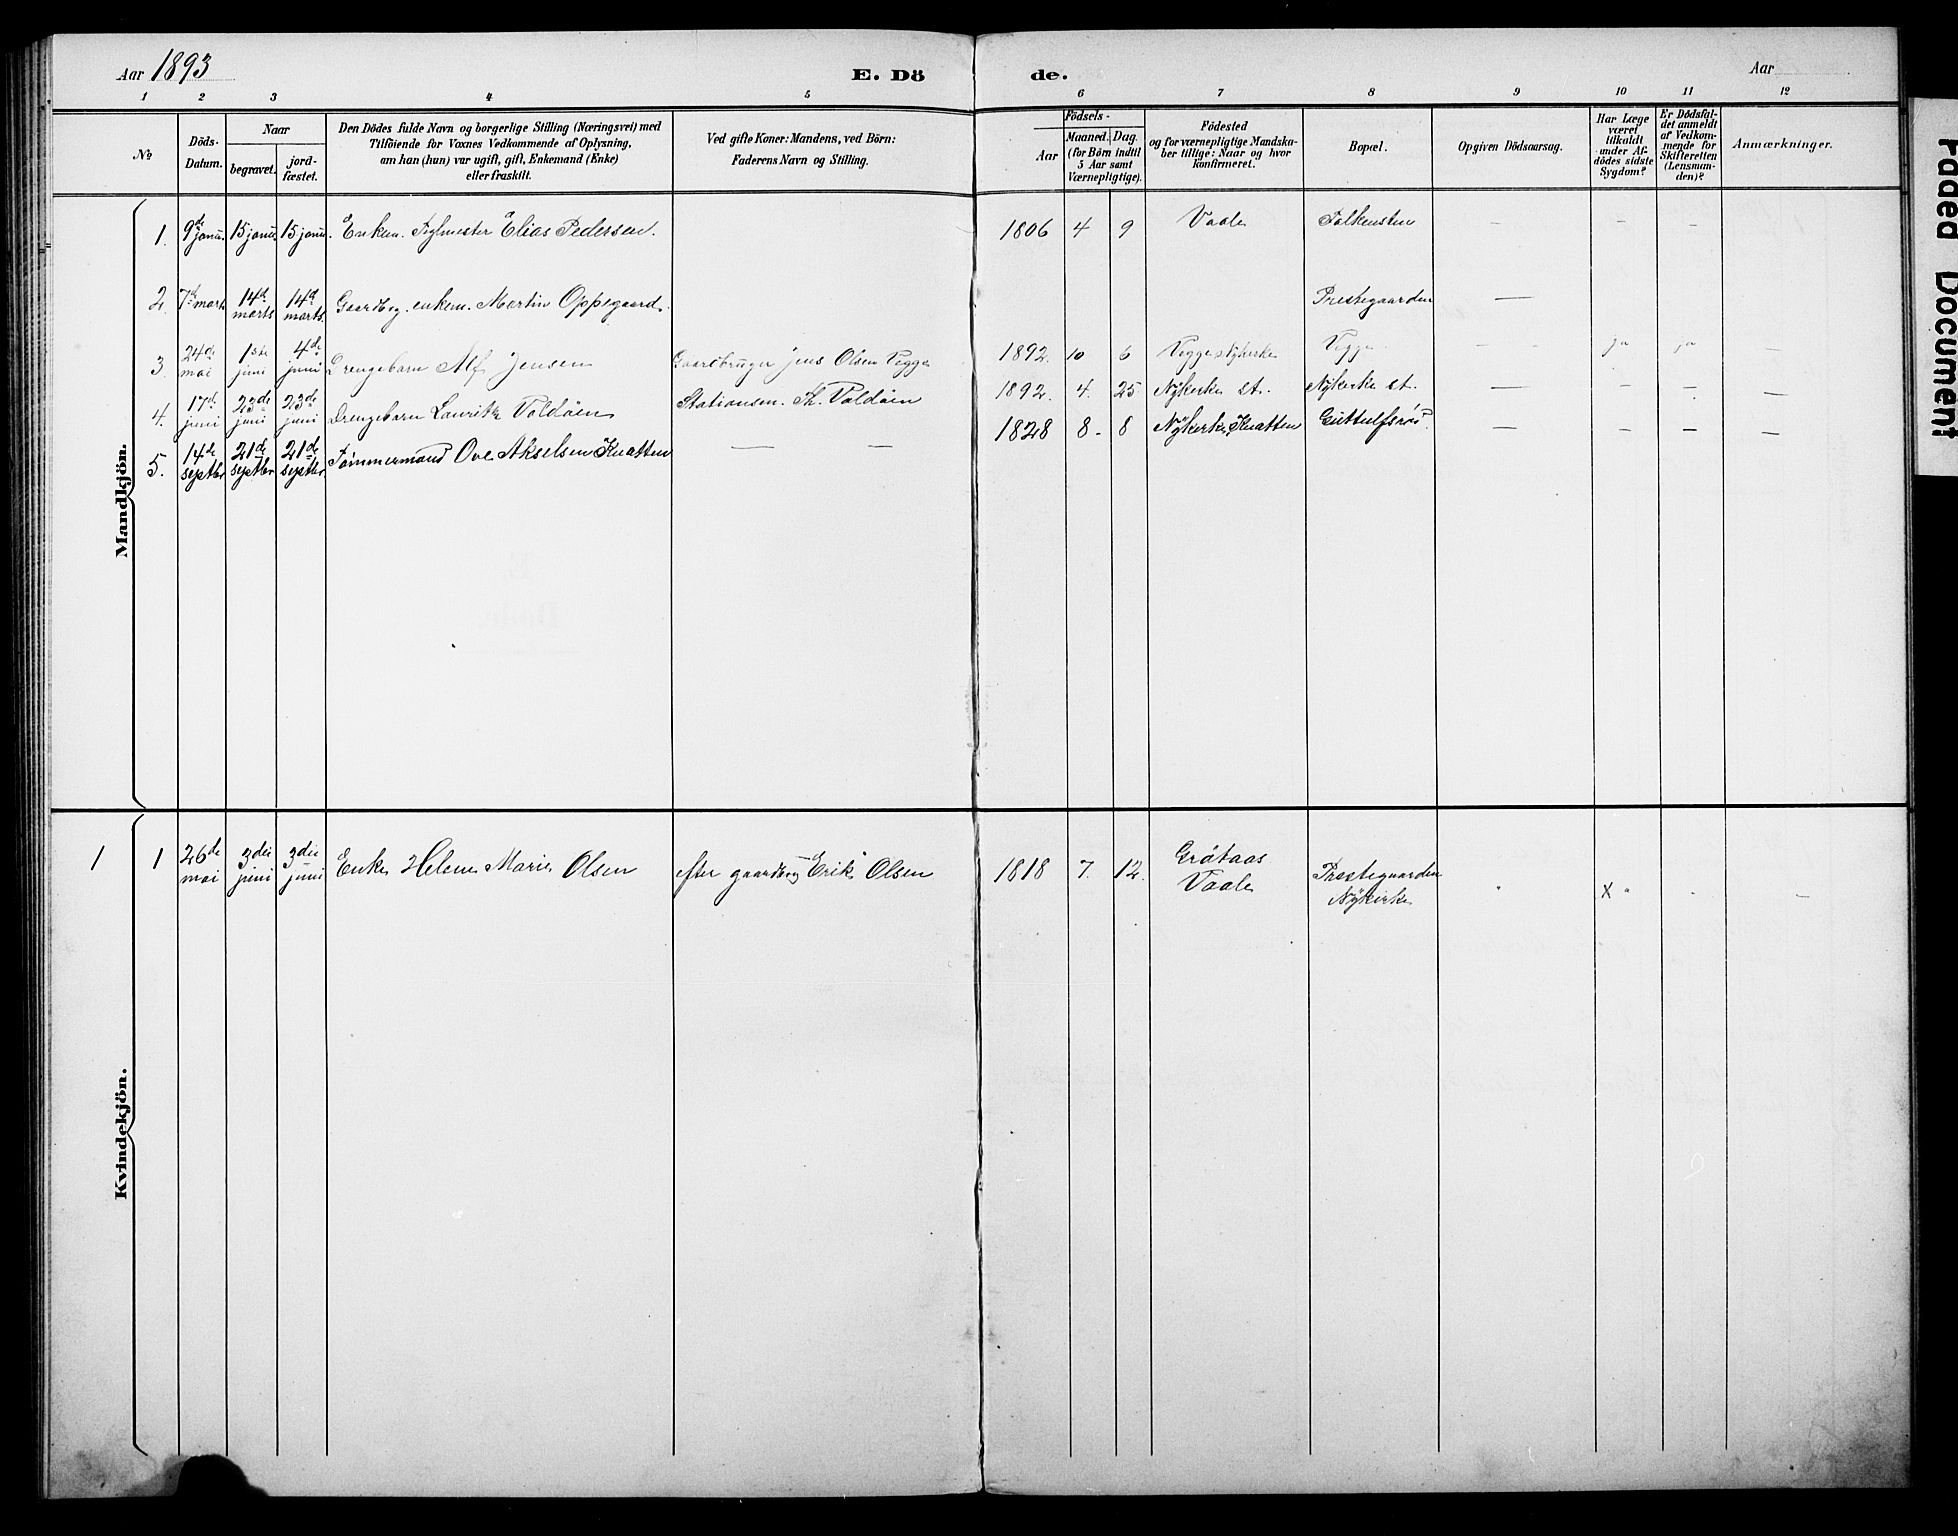 Aar 1893
E. Döde.
Aar
1 2 3 4 5 6 7 8 9 10 11 12
No
Döds-Datum.
Naar
begravet.
jord-fæstet.
Den Dödes fulde Navn og borgerlige Stilling (Næringsvei) med
Tilföiende for Voxnes Vedkommende af Oplysning,
am han (hun) var ugift, gift, Enkemand (Enke)
eller fraskilt.
Ved gifte Koner: Mandens, ved Börn:
Faderens Navn og Stilling.
Födsels-
Aar
Maaned. Dag.
(for Börn indtil
5 Aar samt
Værnepligtige).
Födested
og for værnepligtige Mandska-
ber tillige: Naar og hvor
konfirmeret.
Bopæl.
Opgiven Dödsaarsag.
Har Læge
været
tilkaldt
under Af-
dödes sidste
Sygdom?
Er Dödsfal-
det anmeldt
af Vedkom-
mende for
Skifteretten
(Lensman-
den)?
Anmærkninger.
Mandkjön.
1. 9de janu. 15 janu. 15 janu. Enkem. Elias Pedersen. 1806 4 9 Vaale Falkensten - - -
2. 7d marts 14d marts 14d marts. Gaardbrg. enkem. Martin Oppegaard. Prestegaarden —
3. 24de mai 1ste juni 4de juni Drengebarn Alf Jensen Gaardbruger Jens Olsen Vegge 1892. 10 6 Vegge Nykirke Vegge - - ja ja —
4. 17d juni 23de juni 23de juni Drengebarn Lauritz Voldöien Stationsm. Th. Voldöien 1892. 4. 25 Nykerke st. Nykerke st. — - - —
5. 14de septbr 21de septbr 21de septbr. Tömmermand Ove Akselsen Knatten — — 1828 8 - 8 Nykerke, Knatten Guttulfsröd — - - —
Kvindekjön.
1 1 26de mai 3die juni 3die juni Enke Helene Marie Olsen efter gaardbrg Erik Olsen 1818 7. 12. Gråtaas Vaale Prestegaarden Nykirke " X " . —
Faded Document